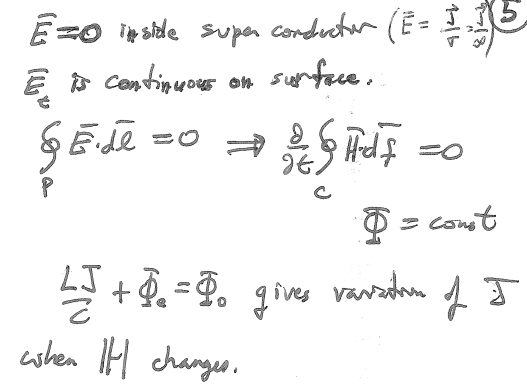 Ē = 0 inside super conductor (Ē = J̄/σ = J̄/∞) 5
Ē_t is continuous on surface.
∮_P Ē·dl̄ = 0 ⟹ ∂/∂t ∮_C H̄·df̄ = 0
Φ = const
LJ/C + Φ_e = Φ_0 gives variation of J
when |H| changes.